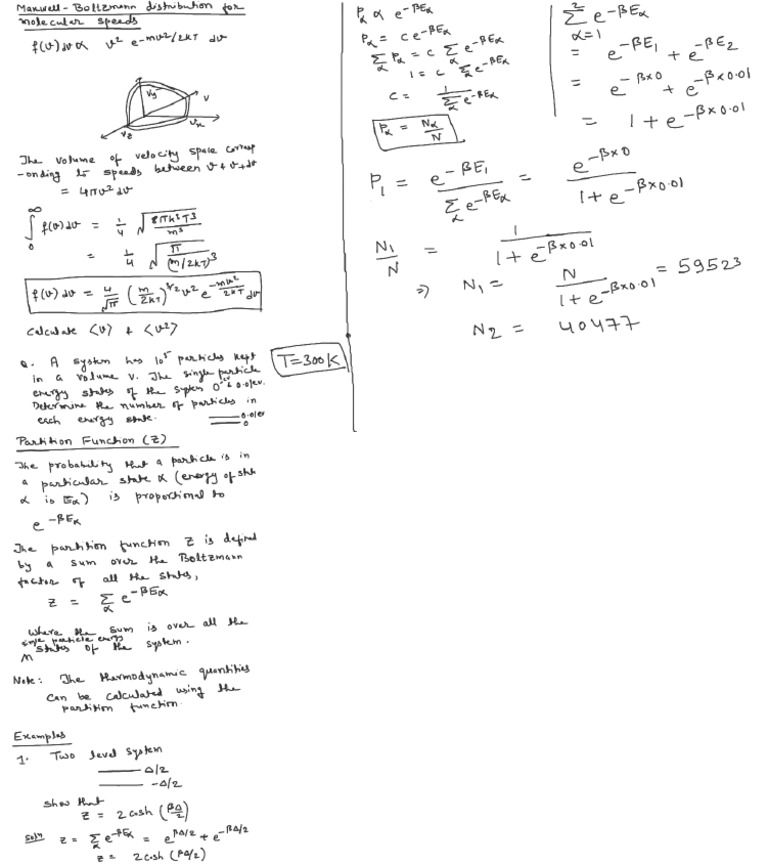 Maxwell-Boltzmann distribution for
molecular speeds
f(v)dv ∝ v² e^{-mv²/2kT} dv
v_y
v
v_x
v_z
The volume of velocity space corresp
-onding to speeds between v & v+dv
= 4πv² dv
∫₀^∞ f(v)dv = 1/4 √(8πk³T³/m³)
= 1/4 √(π/(m/2kT)³)
f(v) dv = 4/√π (m/2kT)^{3/2} v² e^{-mv²/2kT} dv
Calculate <v> & <v²>
Q. A system has 10⁵ particles kept
in a volume V. The single particle
energy states of the system 0 & 0.01eV.
Determine the number of particles in
each energy state.
0.01eV
0
T=300K
Partition Function (Z)
The probability that a particle is in
a particular state α (energy of state
α is Eα) is proportional to
e^{-βEα}
The partition function Z is defined
by a sum over the Boltzmann
factor of all the states,
Z = Σ_α e^{-βEα}
Where the sum is over all the
single particle energy
states of the system.
Note: The thermodynamic quantities
can be calculated using the
partition function.
Examples
1. Two level system
Δ/2
-Δ/2
Show that
Z = 2cosh (βΔ/2)
Soln Z = Σ_α e^{-βEα} = e^{βΔ/2} + e^{-βΔ/2}
Z = 2cosh (βΔ/2)
Pα ∝ e^{-βEα}
Pα = c e^{-βEα}
Σ_α Pα = c Σ_α e^{-βEα}
1 = c Σ_α e^{-βEα}
c = 1/Σ_α e^{-βEα}
Pα = Nα/N
Σ_{α=1}^{2} e^{-βEα}
= e^{-βE₁} + e^{-βE₂}
= e^{-β×0} + e^{-β×0.01}
= 1 + e^{-β×0.01}
P₁ = e^{-βE₁}/Σ_α e^{-βEα} = e^{-β×0}/(1+e^{-β×0.01})
N₁/N = 1/(1+e^{-β×0.01})
⇒ N₁ = N/(1+e^{-β×0.01}) = 59523
N₂ = 40477